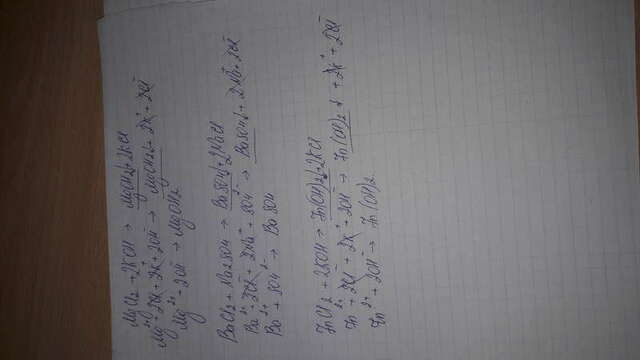 MgCl2 + 2KOH → MgOH2↓ + 2KCl
Mg2+ + 2Cl- + 2K+ + 2OH- → MgOH2↓ + 2K+ + 2Cl-
Mg2+ + 2OH- → MgOH2
BaCl2 + Na2SO4 → BaSO4↓ + 2NaCl
Ba2+ + 2Cl- + 2Na+ + SO42- → BaSO4↓ + 2Na+ + 2Cl-
Ba2+ + SO42- → BaSO4
ZnCl2 + 2KOH → Zn(OH)2↓ + 2KCl
Zn2+ + 2Cl- + 2K+ + 2OH- → Zn(OH)2↓ + 2K+ + 2Cl-
Zn2+ + 2OH- → Zn(OH)2